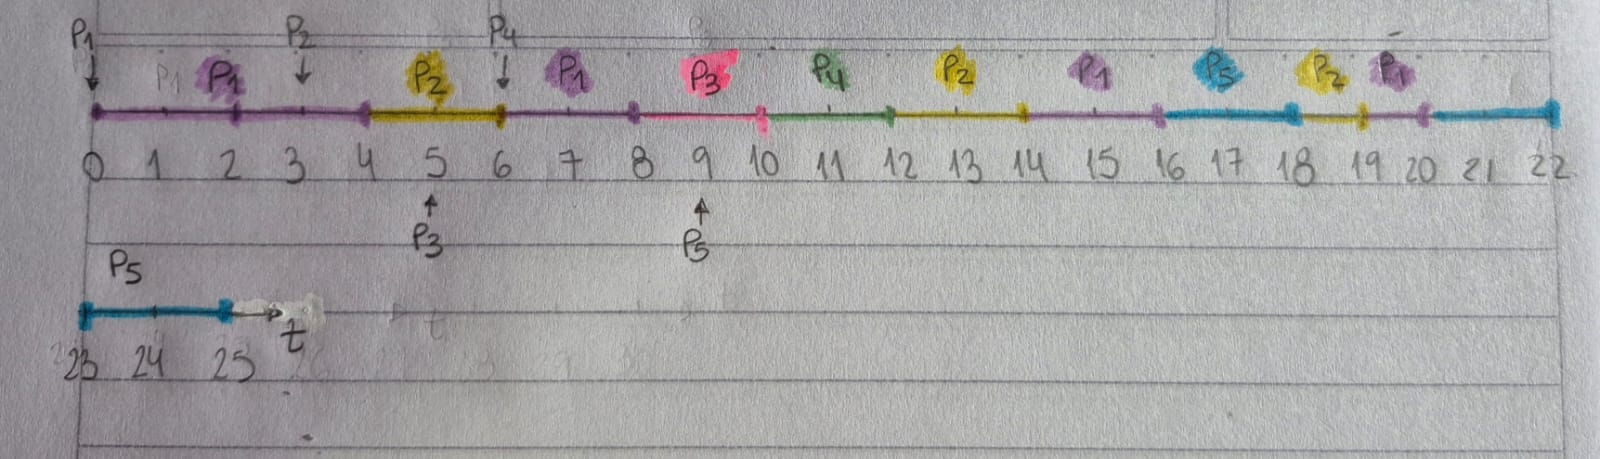 P1 P2 P4
P1 P1 P2 P1 P3 P4 P2 P1 P5 P2 P1
0 1 2 3 4 5 6 7 8 9 10 11 12 13 14 15 16 17 18 19 20 21 22
P3 P5
P5
t
23 24 25